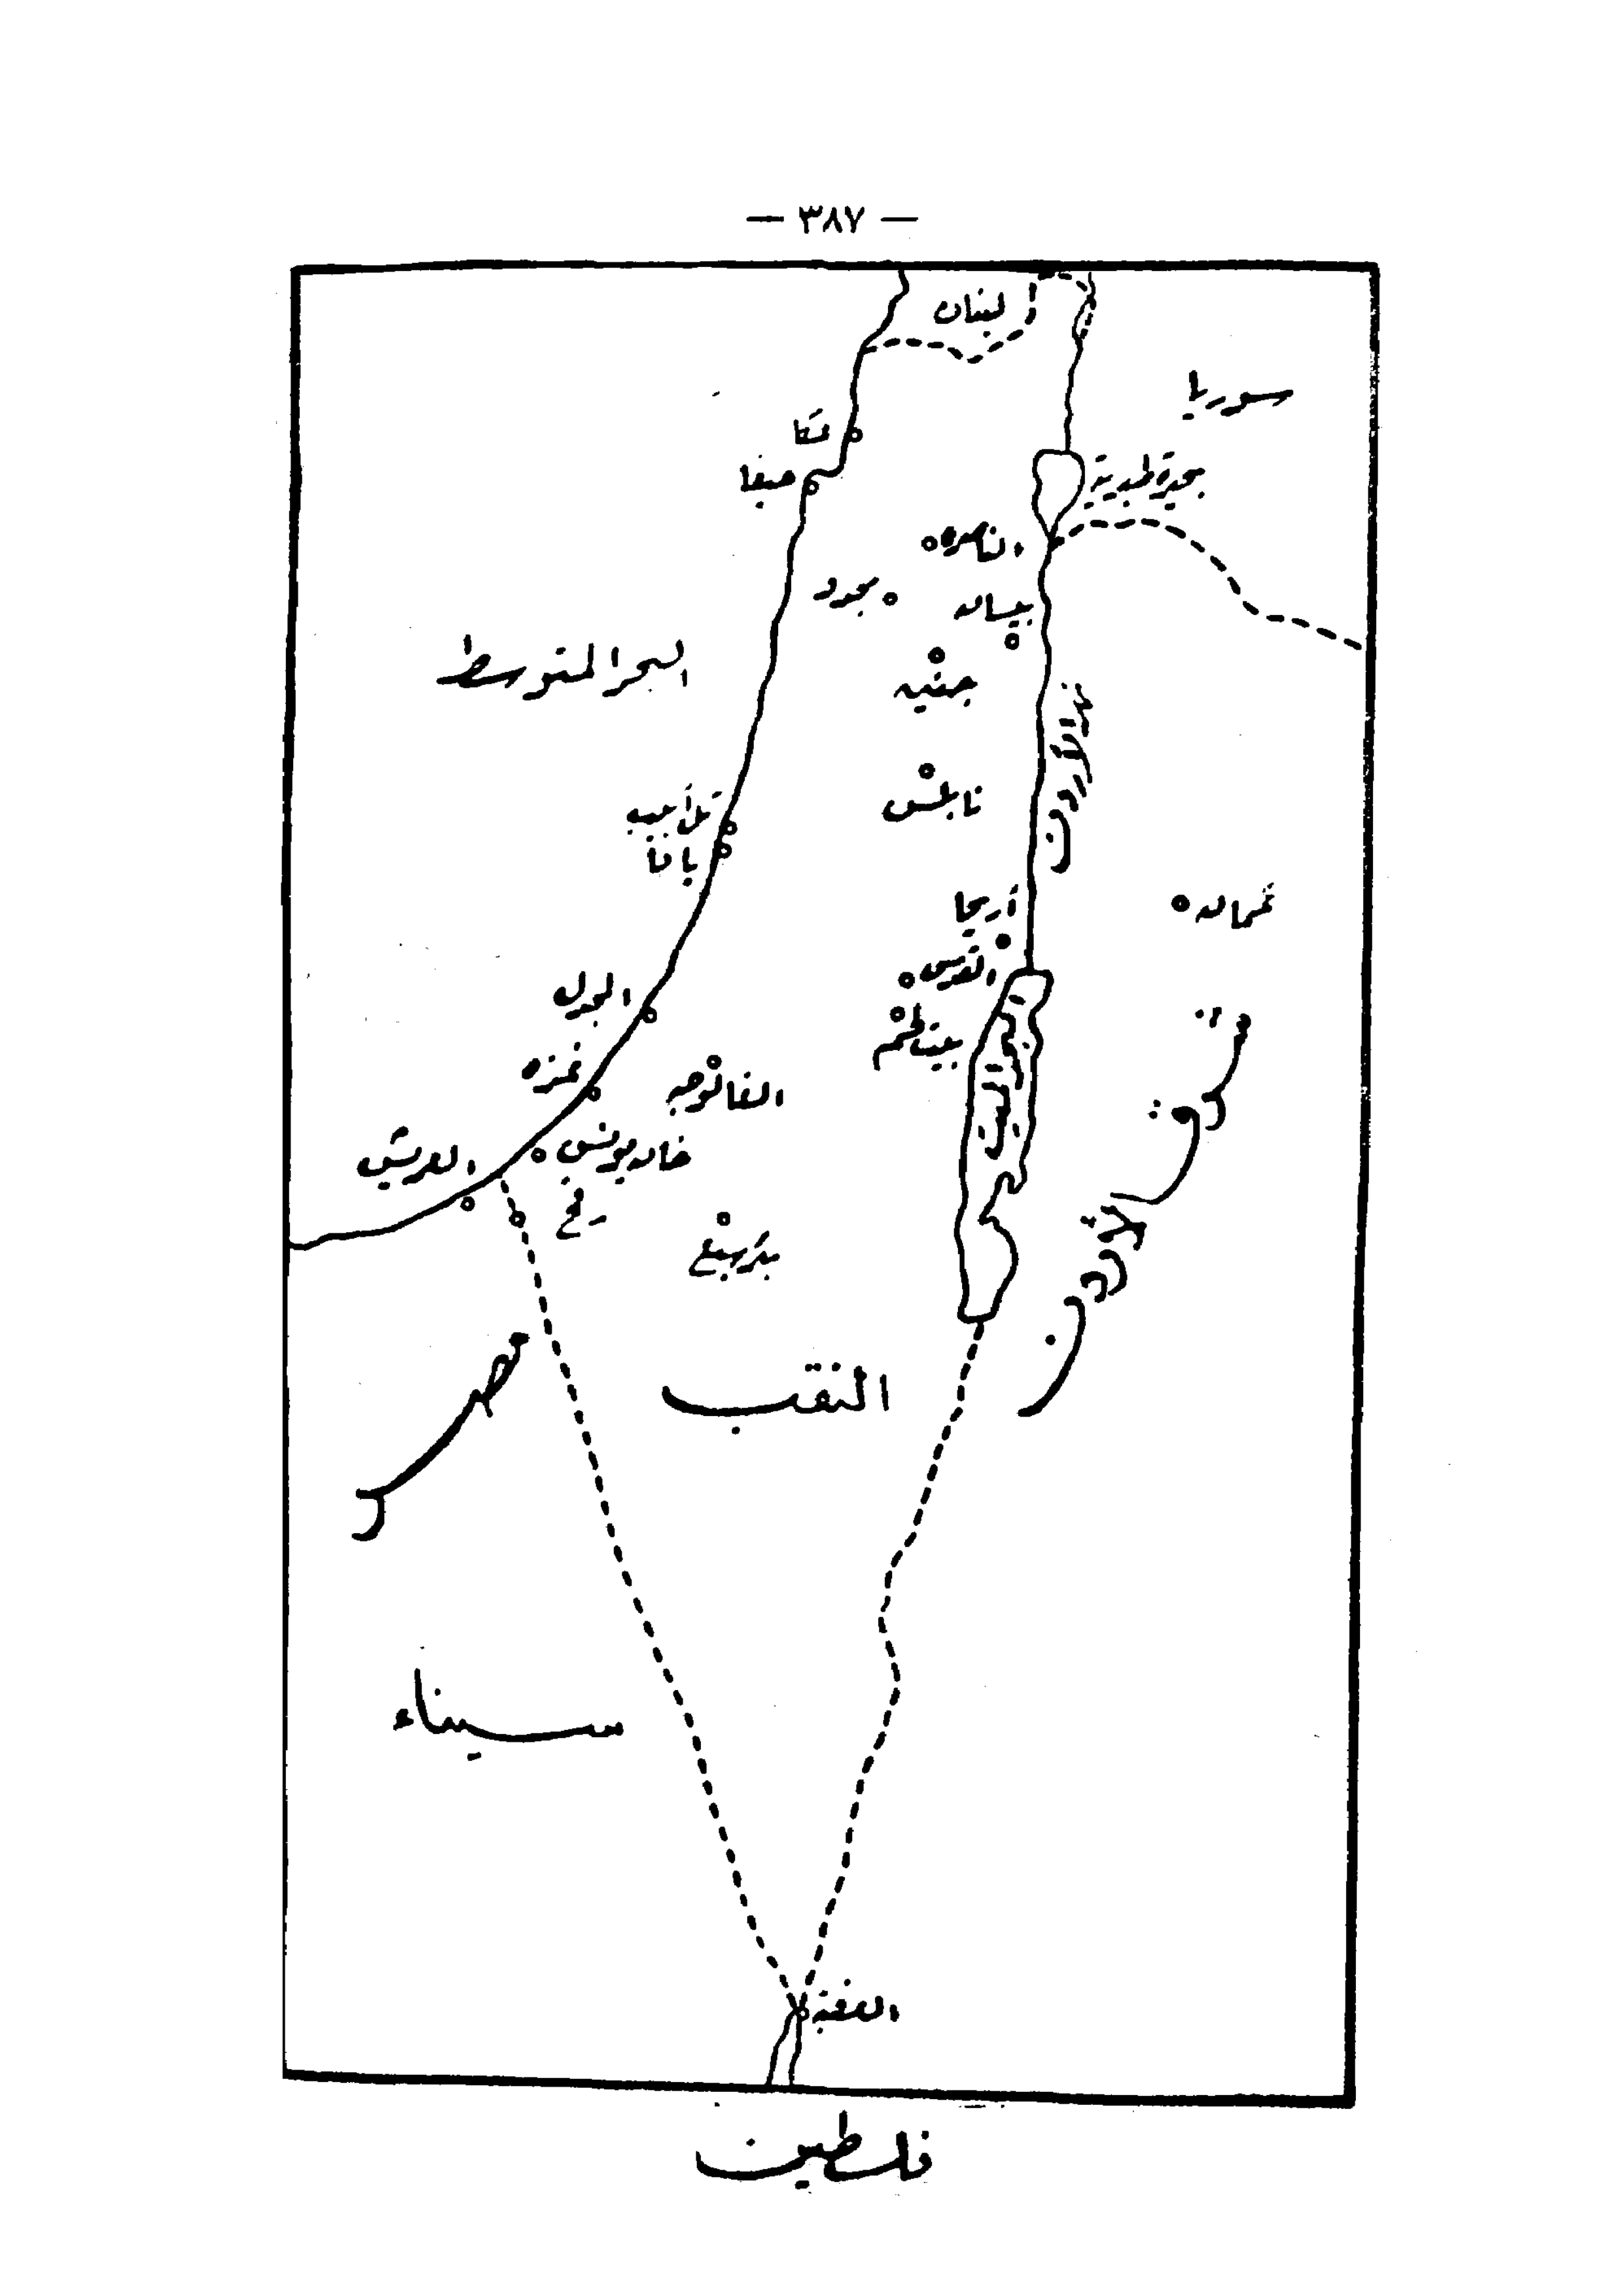 — ٣٨٧ —
لبنان
سوريا
عكا
حيفا
بحيرة طبرية
الناصره
بيسان
البحر المتوسط
جنين
نهر الأردن
نابلس
تل أبيب
يافا
أريحا
عمان
القدس
المجدل
بيت لحم
غزه
الفالوجه
شرق الأردن
خان يونس
العريش
رفح
بئر سبع
مصر
النقب
سيناء
العقبة
فلسطين